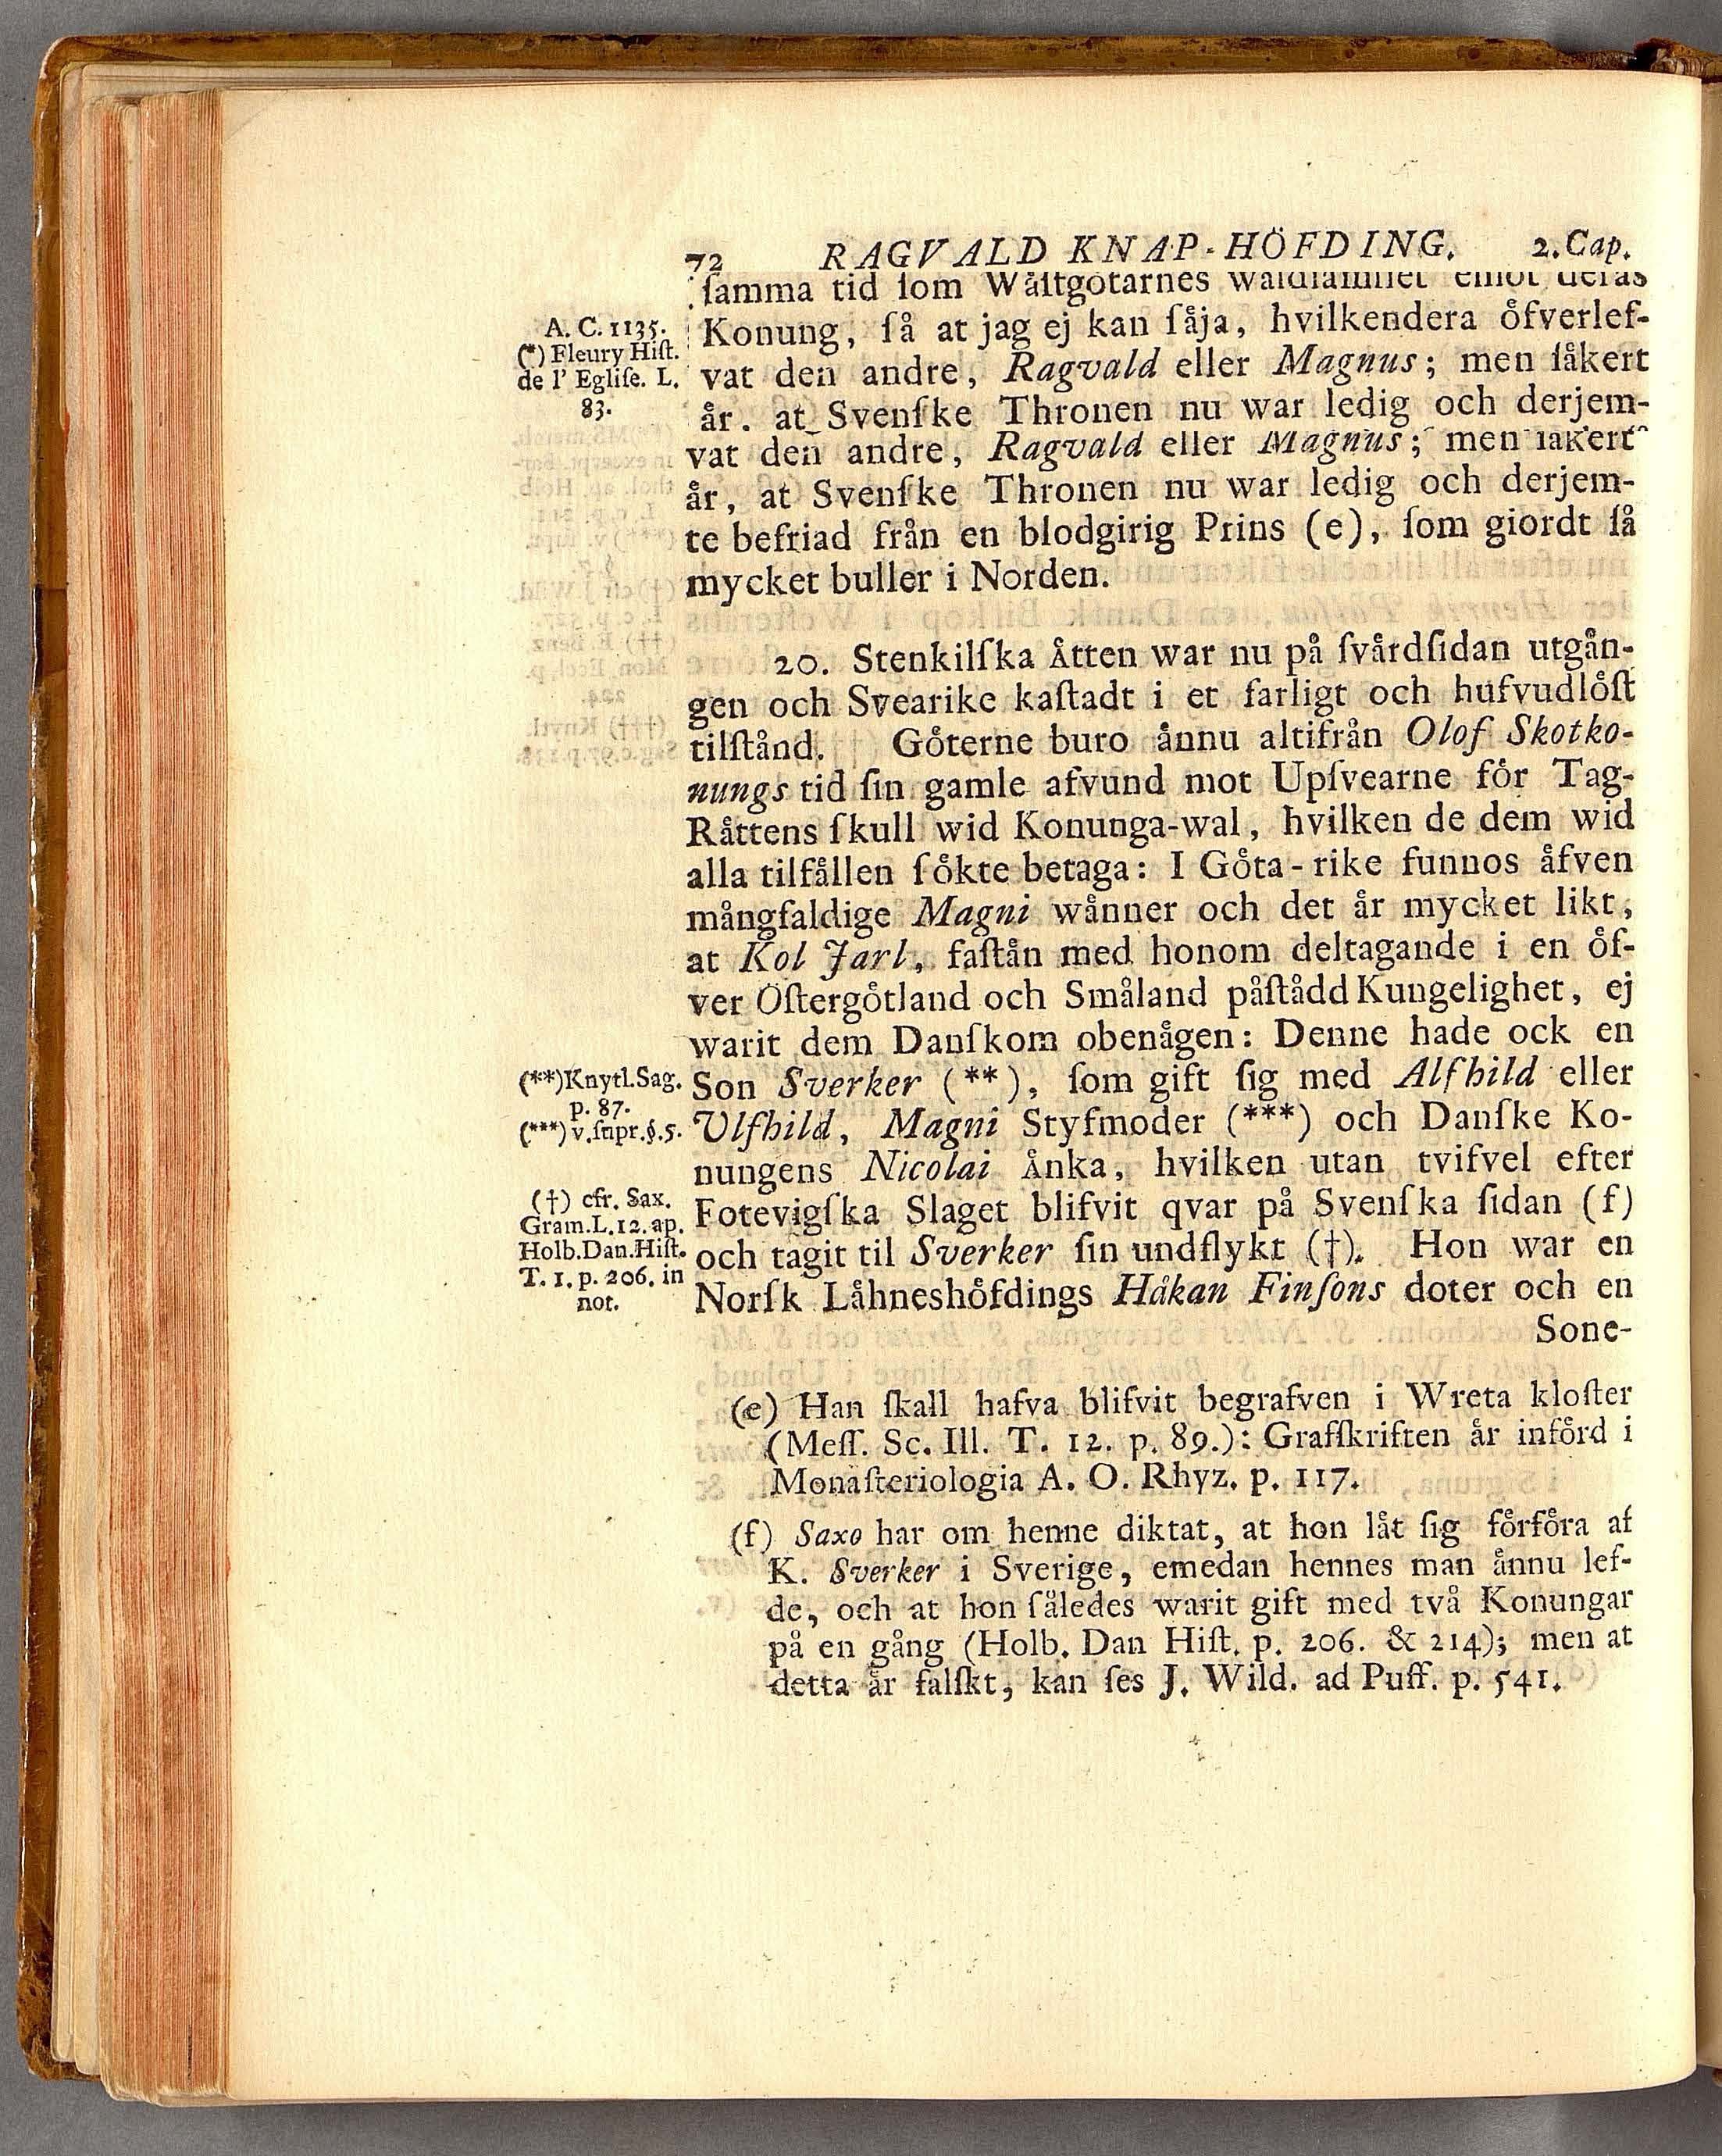 72 RAGVALD KNAP-HÖFDING. 2. Cap.
ſamma tid ſom Wåſtgötarnes
A. C. 1135.
(*) Fleury Hiſt.
de l' Egliſe. L.
83.
Konung, ſå at jag ej kan ſåja, hvilkendera öfverlef-
vat den andre, Ragvald eller Magnus; men ſåkert
år. at Svenſke Thronen nu war ledig och derjem-
vat den andre, Ragvald eller Magnus; men ſåkert
år, at Svenſke Thronen nu war ledig och derjem-
te befriad från en blodgirig Prins (e), ſom giordt ſå
mycket buller i Norden.
20. Stenkilſka Åtten war nu på ſvårdſidan utgån-
gen och Svearike kaſtadt i et farligt och hufvudlöſt
tilſtånd. Göterne buro ånnu altifrån Olof Skotko-
nungs tid ſin gamle afvund mot Upſvearne för Tag-
Råttens ſkull wid Konunga-wal, hvilken de dem wid
alla tilfållen ſökte betaga: I Göta-rike funnos åfven
mångfaldige Magni wånner och det år mycket likt,
at Kol Jarl, faſtån med honom deltagande i en öf-
ver Öſtergötland och Småland påſtådd Kungelighet, ej
warit dem Danſkom obenågen: Denne hade ock en
(**) Knytl. Sag.
p. 87.
(***) v. ſupr. §. 5.
Son Sverker (**), ſom gift ſig med Alfhild eller
Ulfhild, Magni Styfmoder (***) och Danſke Ko-
nungens Nicolai Ånka, hvilken utan tvifvel efter
(†) cfr. Sax.
Gram. L. 12. ap.
Holb. Dan. Hiſt.
T. 1. p. 206. in
not.
Fotevigſka Slaget blifvit qvar på Svenſka ſidan (f)
och tagit til Sverker ſin undflykt (†). Hon war en
Norſk Låhneshöfdings Håkan Finſons doter och en
Sone-
(e) Han ſkall hafva blifvit begrafven i Wreta kloſter
(Meſſ. Sc. Ill. T. 12. p. 89.): Grafſkriften år införd i
Monaſteriologia A. O. Rhyz. p. 117.
(f) Saxo har om henne diktat, at hon låt ſig förföra af
K. Sverker i Sverige, emedan hennes man ånnu lef-
de, och at hon ſåledes warit gift med två Konungar
på en gång (Holb. Dan Hiſt. p. 206. & 214); men at
detta år falſkt, kan ſes J. Wild. ad Puff. p. 541.